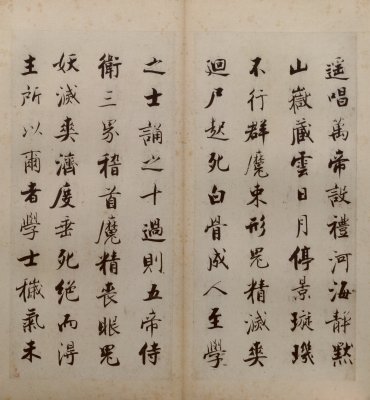 遥唱萬帝設禮河海静默
山嶽藏雲日月停景璇璣
不行群魔束形鬼精滅爽
迴尸起死白骨成人至學
之士誦之十過則五帝侍
衛三界稽首魔精喪眼鬼
妖滅爽濟度垂死絕而得
主所以爾者學士穢氣未